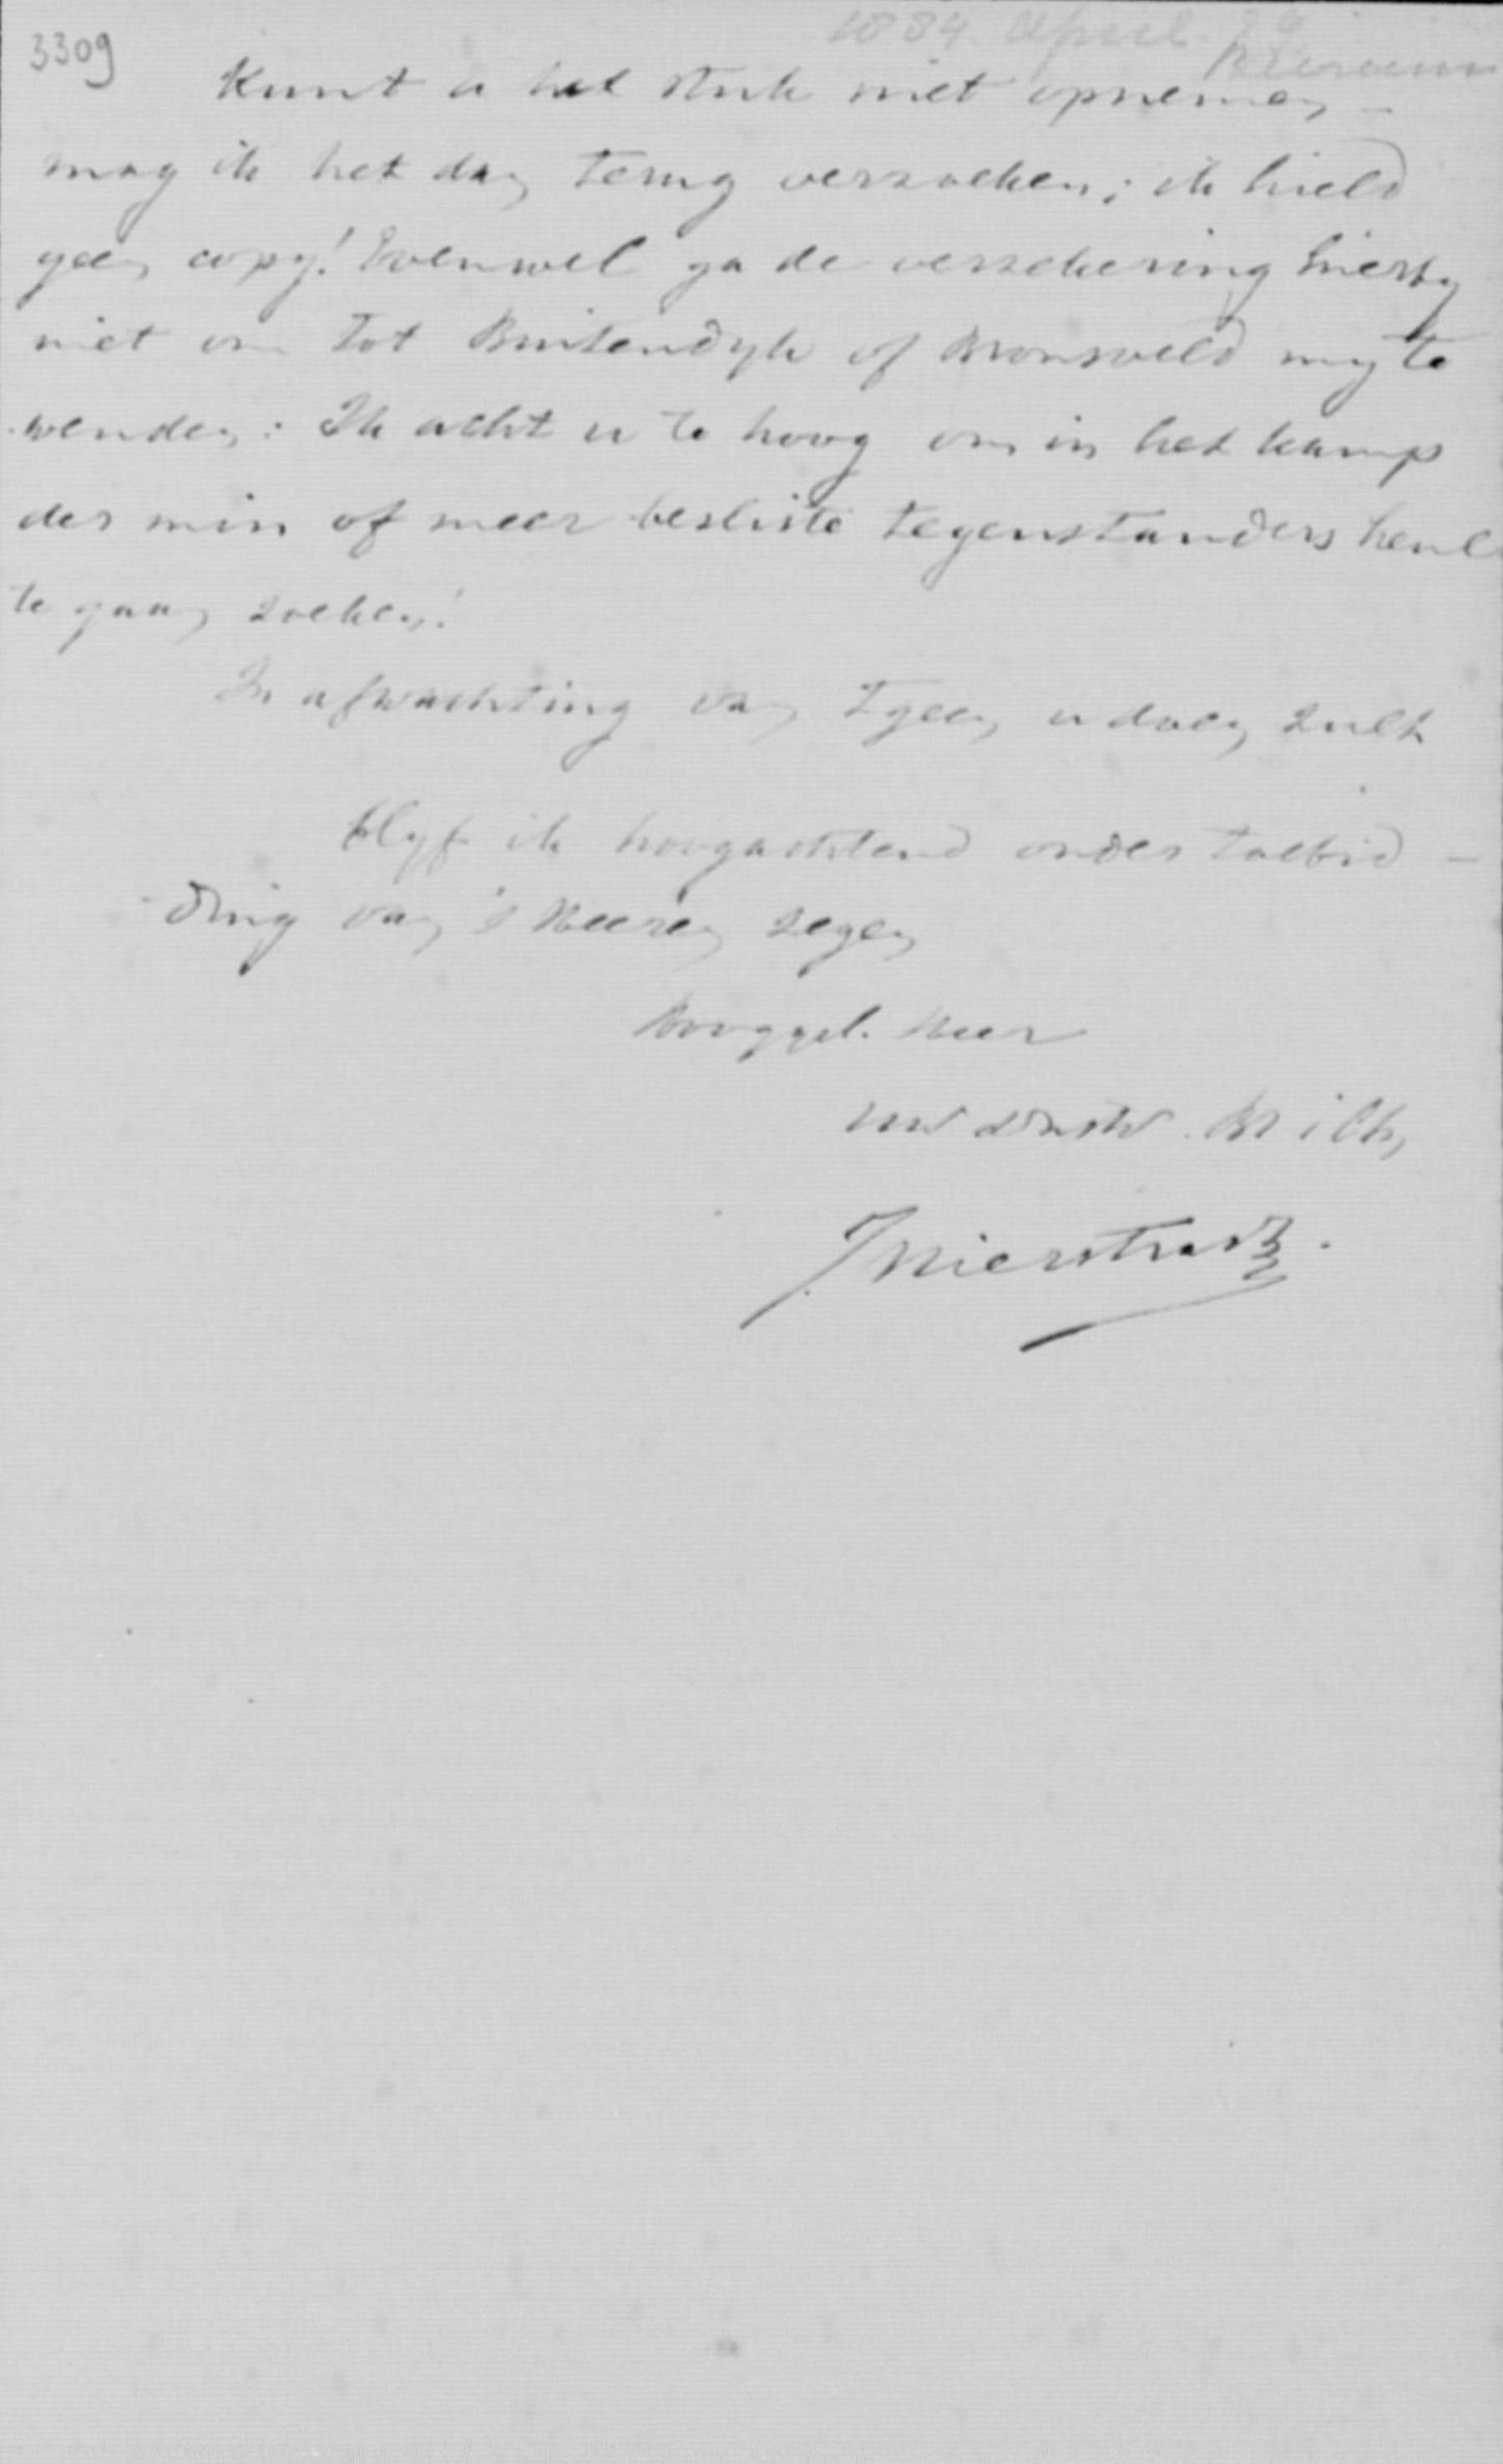 3309
1884. April 29
Kunt u het stuk niet opnemen -
mag ik het dan terug verzoeken; ik hield
geen copy! Evenwel ga de verzekering hierby
niet om tot Buitendyk of Bronsveld my te
wenden: Ik acht u te hoog om in het kamp
der min of meer besliste tegenstanders heul
te gaan zoeken!
In afwachting van 'tgeen u doen zult
blyf ik hoogachtend onder toebid-
ding van 's Heeren zegen
Hooggel. Heer
Uw dnstw.
J Nierstrasz.